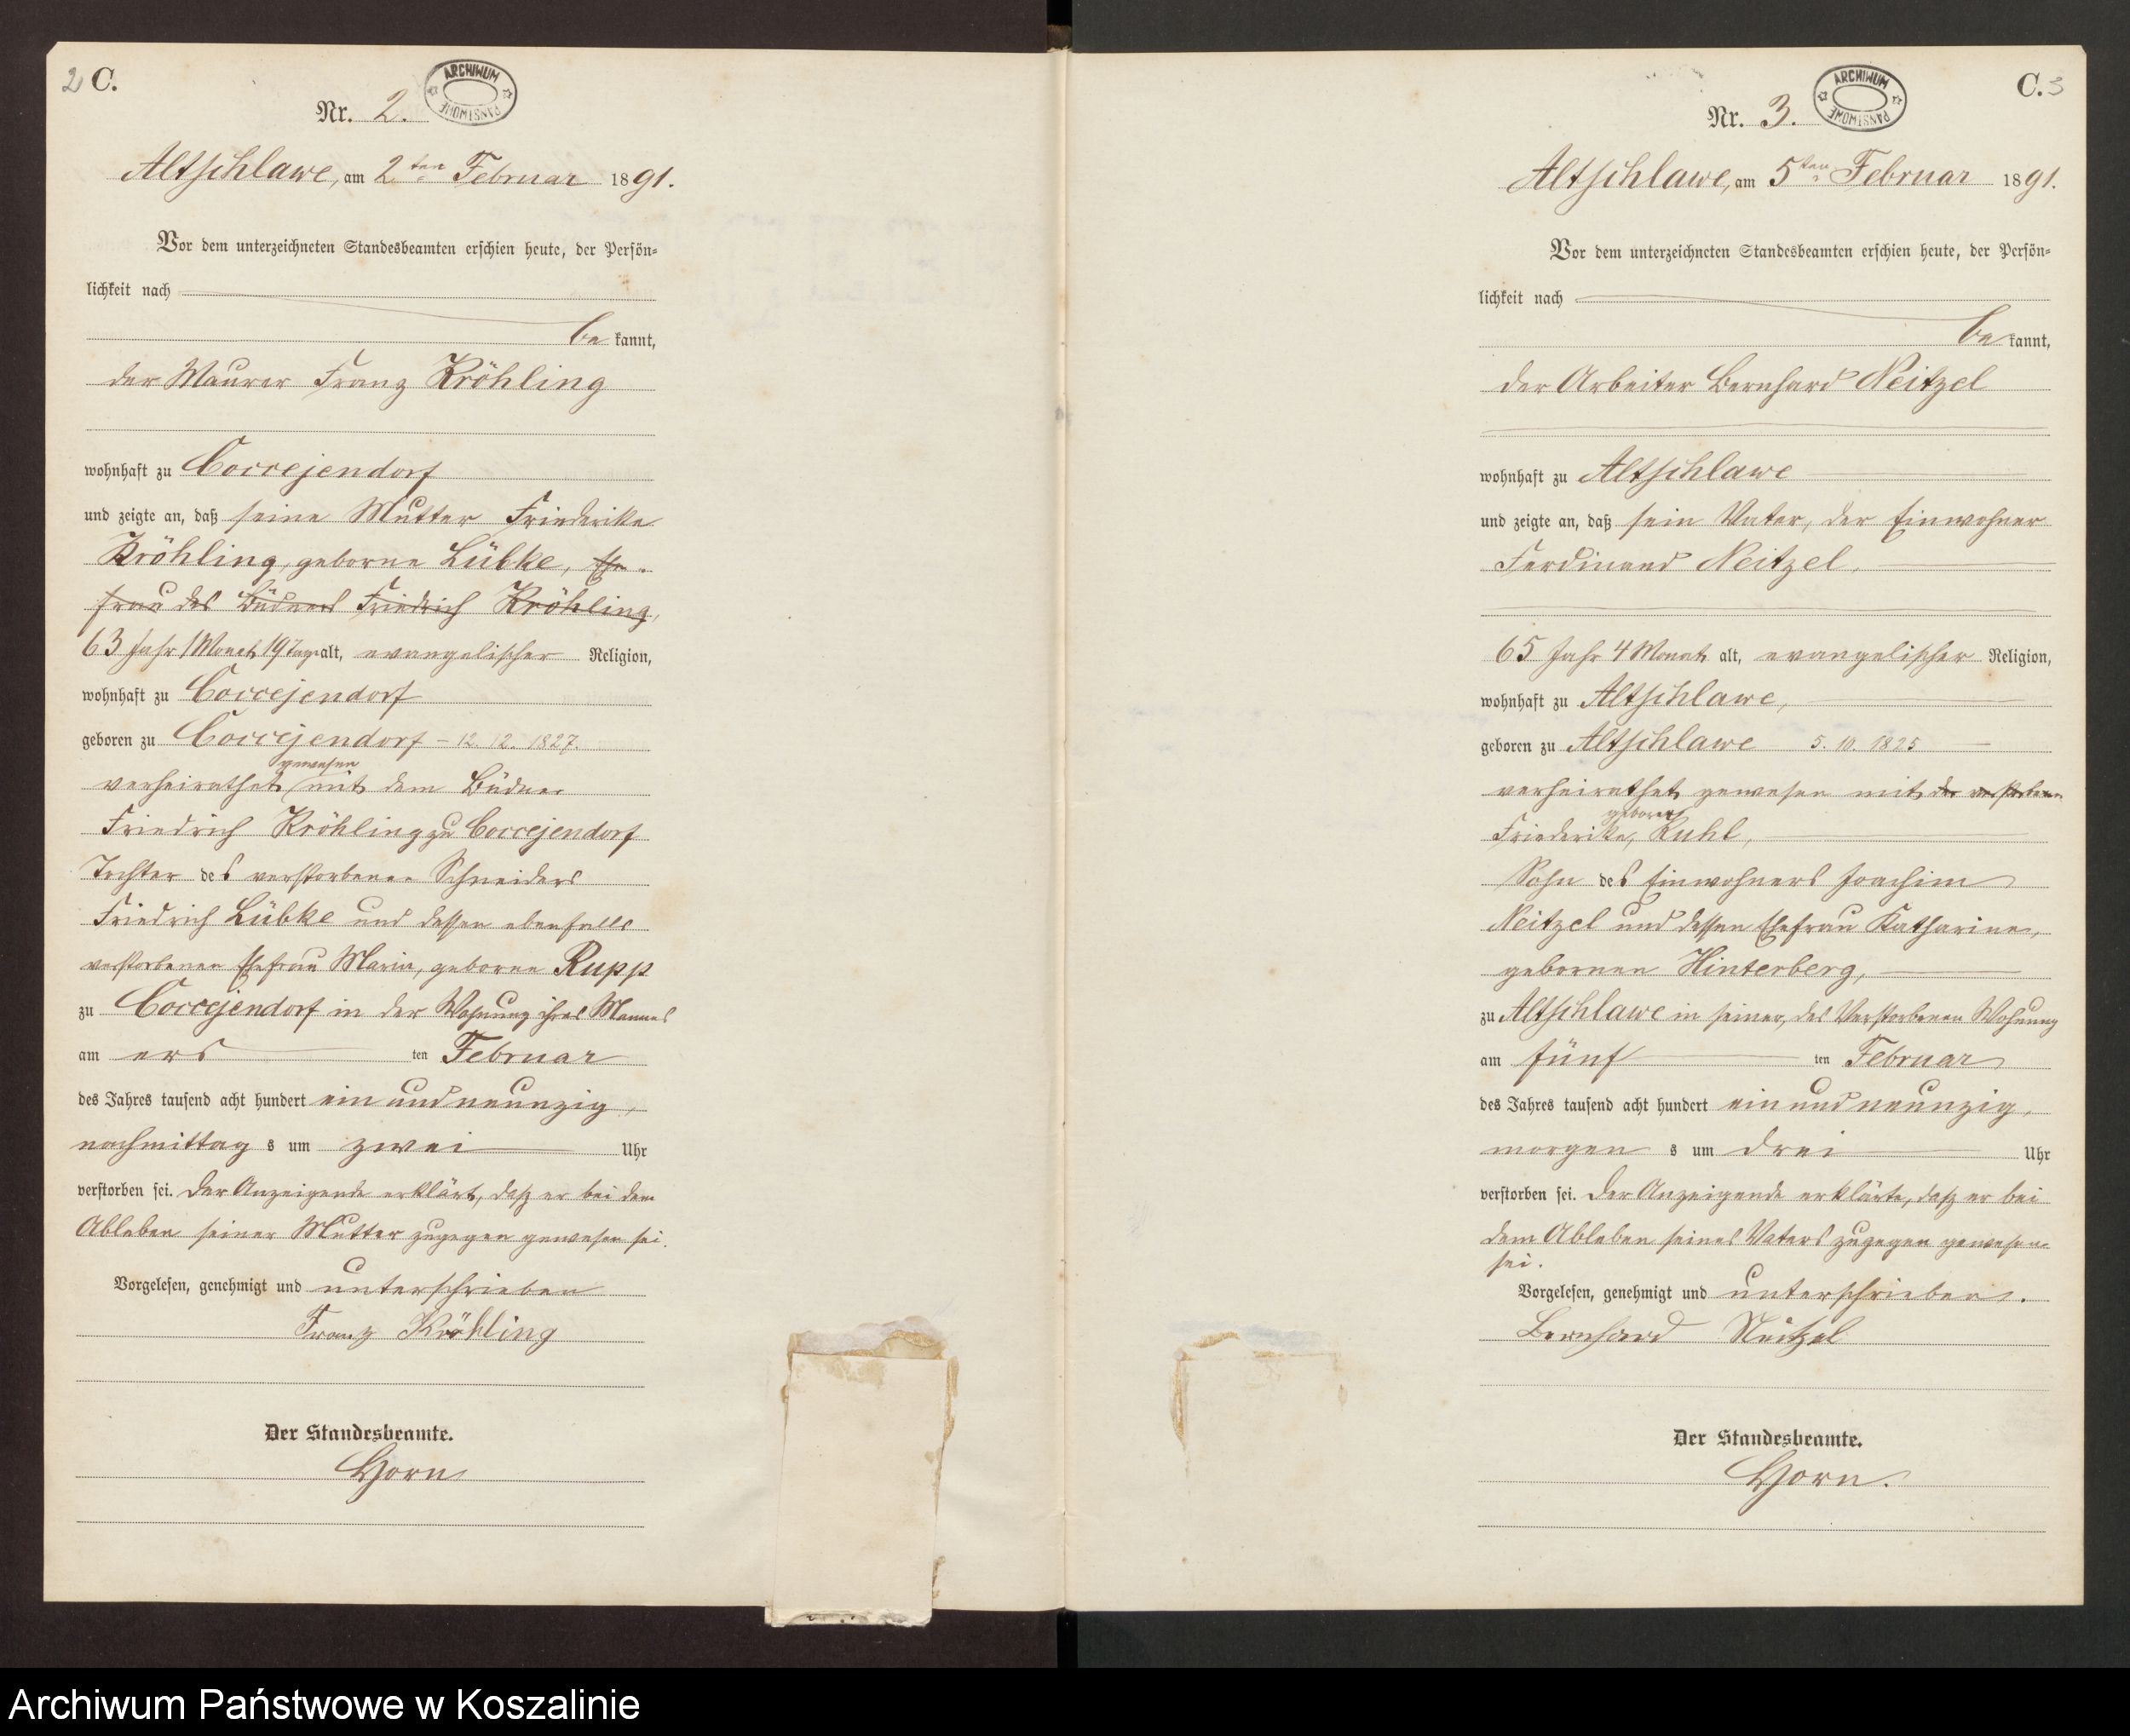 2 C.
ARCHIWUM PAŃSTWOWE
Nr. 2.
Altschlawe, am 2ten Februar 1891.
Vor dem unterzeichneten Standesbeamten erschien heute, der Persön-
lichkeit nach
be kannt,
der Maurer Franz Kröhling
wohnhaft zu Coccejendorf
und zeigte an, daß seine Mutter Friederike
Kröhling, geborne Lübke, Ehe-
frau des Büdners Friedrich Kröhling,
63 Jahr 1 Monat 19 Tage alt, evangelischer Religion,
wohnhaft zu Coccejendorf
geboren zu Coccejendorf - 12. 12. 1827.
gewesen
verheirathet mit dem Büdner
Friedrich Kröhling zu Coccejendorf
Tochter des verstorbenen Schneiders
Friedrich Lübke und dessen ebenfalls
verstorbenen Ehefrau Maria, geborne Rupp
zu Coccejendorf in der Wohnung ihres Mannes
am ers ten Februar
des Jahres tausend acht hundert ein und neunzig,
nachmittag s um zwei Uhr
verstorben sei. Der Anzeigende erklärt, daß er bei dem
Ableben seiner Mutter zugegen gewesen sei.
Vorgelesen, genehmigt und unterschrieben
Franz Kröhling
Der Standesbeamte.
Horn
C. 3
ARCHIWUM PAŃSTWOWE
Nr. 3.
Altschlawe, am 5ten Februar 1891.
Vor dem unterzeichneten Standesbeamten erschien heute, der Persön-
lichkeit nach
be kannt,
der Arbeiter Bernhard Neitzel
wohnhaft zu Altschlawe
und zeigte an, daß sein Vater, der Einwohner
Ferdinand Neitzel,
65 Jahr 4 Monat alt, evangelischer Religion,
wohnhaft zu Altschlawe,
geboren zu Altschlawe 5. 10. 1825
verheirathet gewesen mit der verstorbenen
geborne
Friederike, Ruhl,
Sohn des Einwohners Joachim
Neitzel und dessen Ehefrau Katharine,
gebornen Hinterberg,
zu Altschlawe in seiner, des Verstorbenen Wohnung
am fünf ten Februar
des Jahres tausend acht hundert ein und neunzig,
morgen s um drei Uhr
verstorben sei. Der Anzeigende erklärte, daß er bei
dem Ableben seines Vaters zugegen gewesen
sei.
Vorgelesen, genehmigt und unterschrieben.
Bernhard Neitzel
Der Standesbeamte.
Horn.
Archiwum Państwowe w Koszalinie